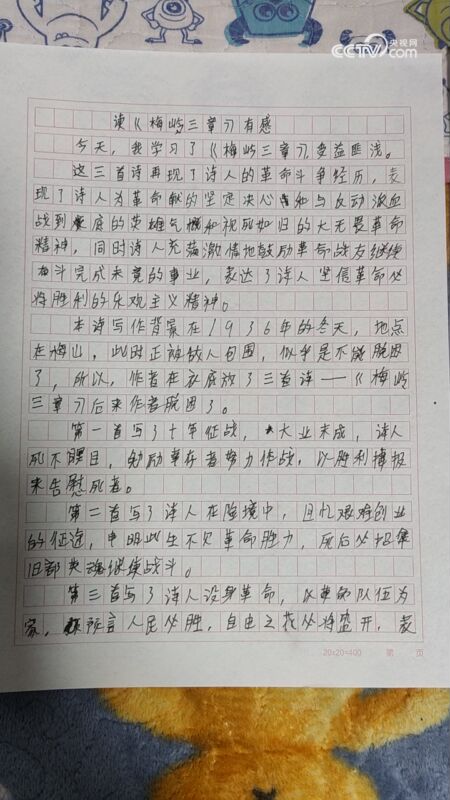 CCTV 央视网
com
读《梅岭三章》有感
今天,我学习了《梅岭三章》,受益匪浅。
这三首诗再现了诗人的革命斗争经历,表
现了诗人为革命献的坚定决心和与反动派血
战到底的英雄气概和视死如归的大无畏革命
精神,同时诗人充满激情地鼓励革命战友继续
奋斗完成未竟的事业,表达了诗人坚信革命必
将胜利的乐观主义精神。
本诗写作背景在1936年的冬天,地点
在梅山,此时正被敌人包围,似乎是不能脱困
了,所以,作者在衣底放了三首诗——《梅岭
三章》后来作者脱困了。
第一首写了十年征战,大业未成,诗人
死不瞑目,勉励幸存者努力作战,以胜利捷报
来告慰死者。
第二首写了诗人在险境中,回忆艰难创业
的征途,申明此生不欠革命胜力,死后必招集
旧部英魂继续战斗。
第三首写了诗人投身革命,以革命队伍为
家,预言人民必胜,自由之花必将盛开,表
20×20=400 第 页